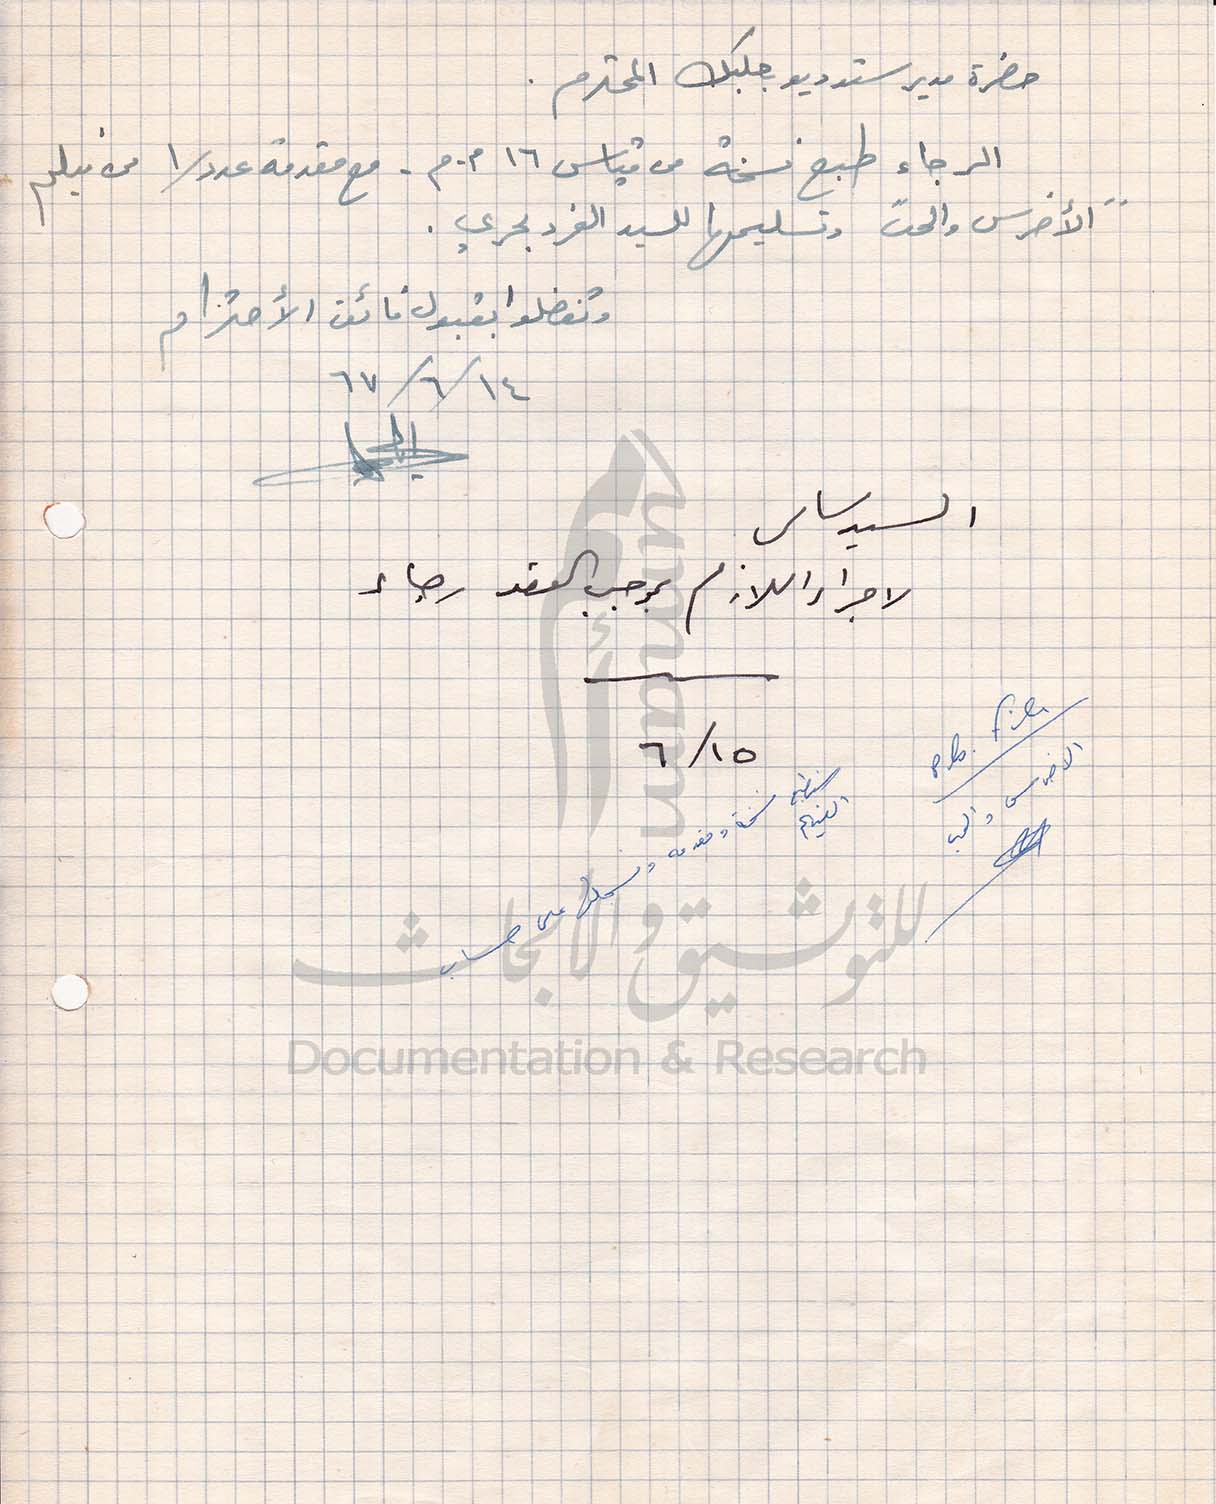 حضرة مدير ستوديو بعلبك المحترم .
الرجاء طبع نسخة من قياس ١٦ م.م - مع مقدمة عدد/١ من فيلم
"الأخرس والحب وتسليمها للسيد الفرد بحري .
وتفضلوا بقبول فائق الأحترام
١٤/٦/٦٧
السيد ساس
لاجراء اللازم بموجب العقد رجاء
١٥/٦
file
الاخرس والحب
الفيلم
نسخة ومقدمة وتسجلها على حساب
umam
أمم
للتوثيق والأبحاث
Documentation & Research